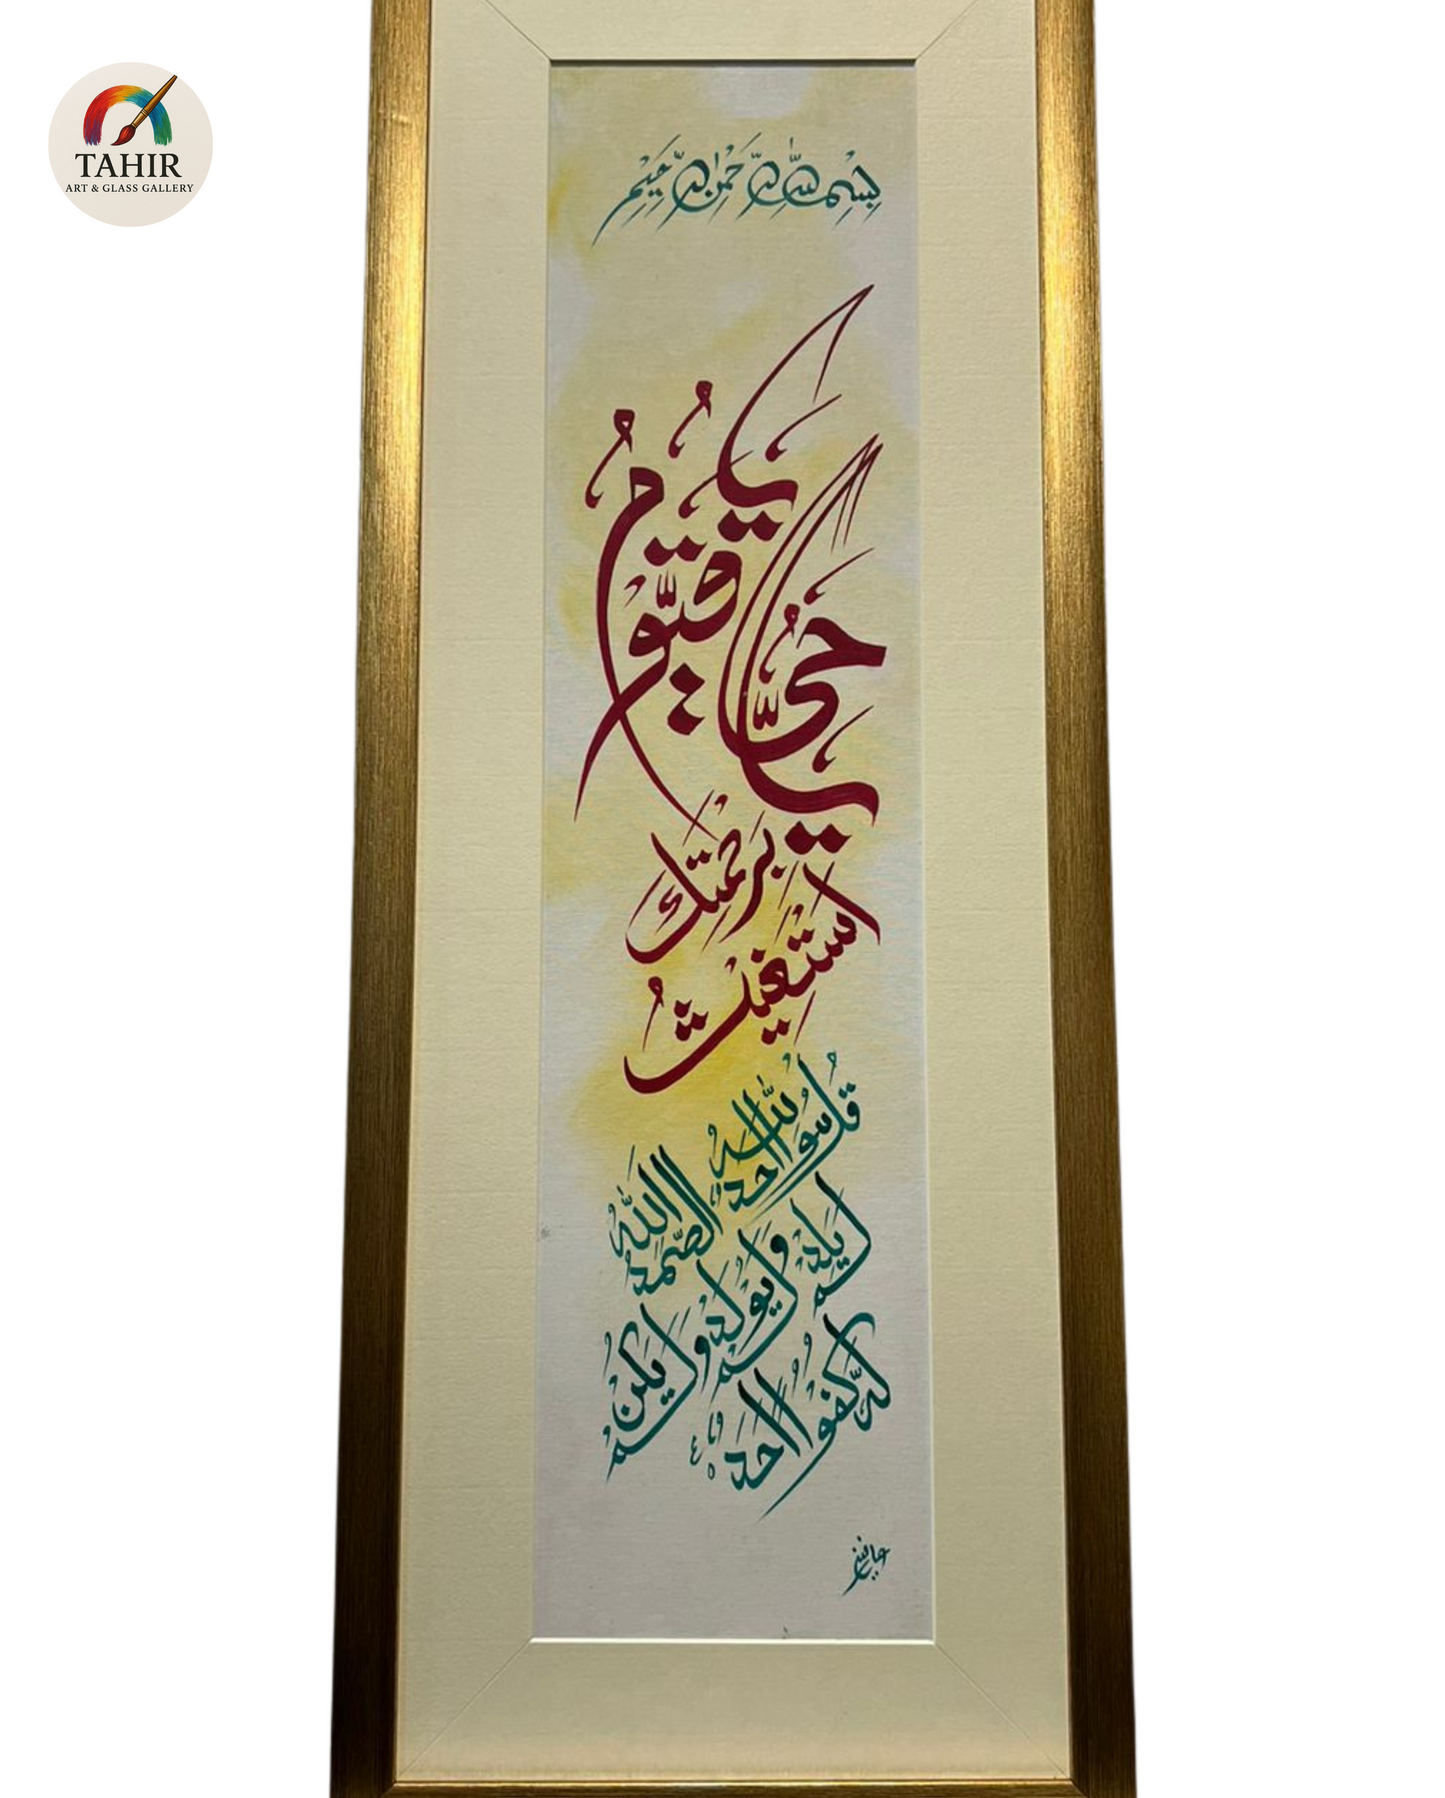 TAHIR
ART & GLASS GALLERY
بِسْمِ اللّٰهِ الرَّحْمٰنِ الرَّحِيْمِ
يَا حَيُّ
يَا قَيُّوْمُ
بِرَحْمَتِكَ
اَسْتَغِيْثُ
قُلْ هُوَ اللّٰهُ اَحَدٌ
اَللّٰهُ الصَّمَدُ
لَمْ يَلِدْ
وَلَمْ يُوْلَدْ
وَلَمْ يَكُنْ
لَّهٗ كُفُوًا اَحَدٌ